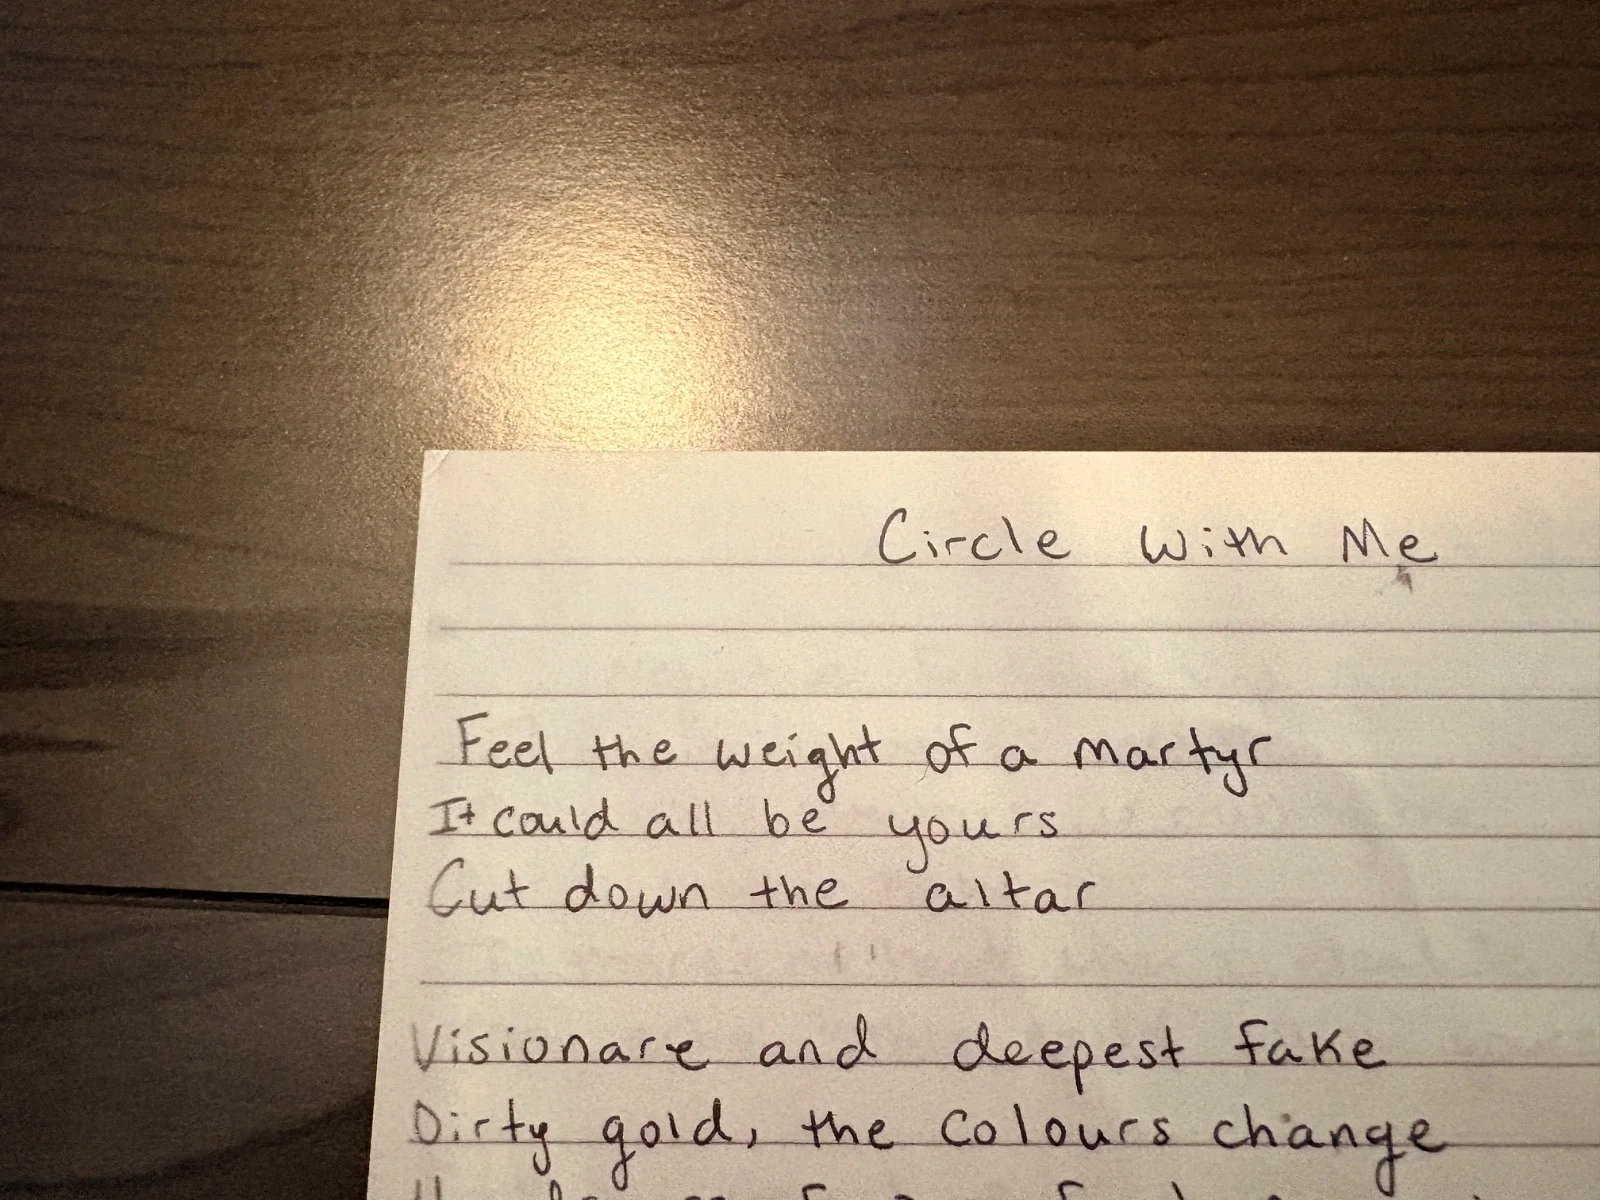 Circle With Me
Feel the weight of a martyr
It could all be yours
Cut down the altar
Visionare and deepest fake
Dirty gold, the colours change